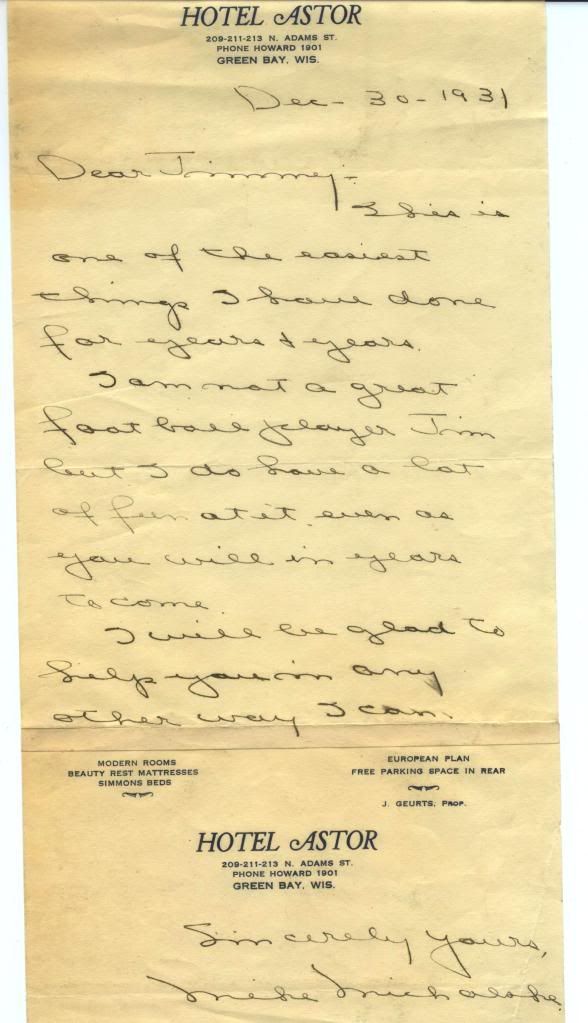 HOTEL ASTOR
209-211-213 N. ADAMS ST.
PHONE HOWARD 1901
GREEN BAY, WIS.
Dec - 30 - 1931
Dear Jimmey:-
This is
one of the easiest
things I have done
for years & years.
I am not a great
foot ball player Jim
but I do have a lot
of fun at it even as
you will in years
to come
I will be glad to
help you in any
other way I can.
MODERN ROOMS
BEAUTY REST MATTRESSES
SIMMONS BEDS
EUROPEAN PLAN
FREE PARKING SPACE IN REAR
J. GEURTS, PROP.
HOTEL ASTOR
209-211-213 N. ADAMS ST.
PHONE HOWARD 1901
GREEN BAY, WIS.
Sincerely yours,
Mike Michalske